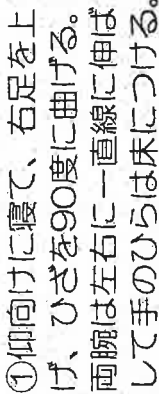 ①仰向けに寝て、右足を上
げ、ひざを90度に曲げる。
両腕は左右に一直線に伸ば
して手のひらは床につける。